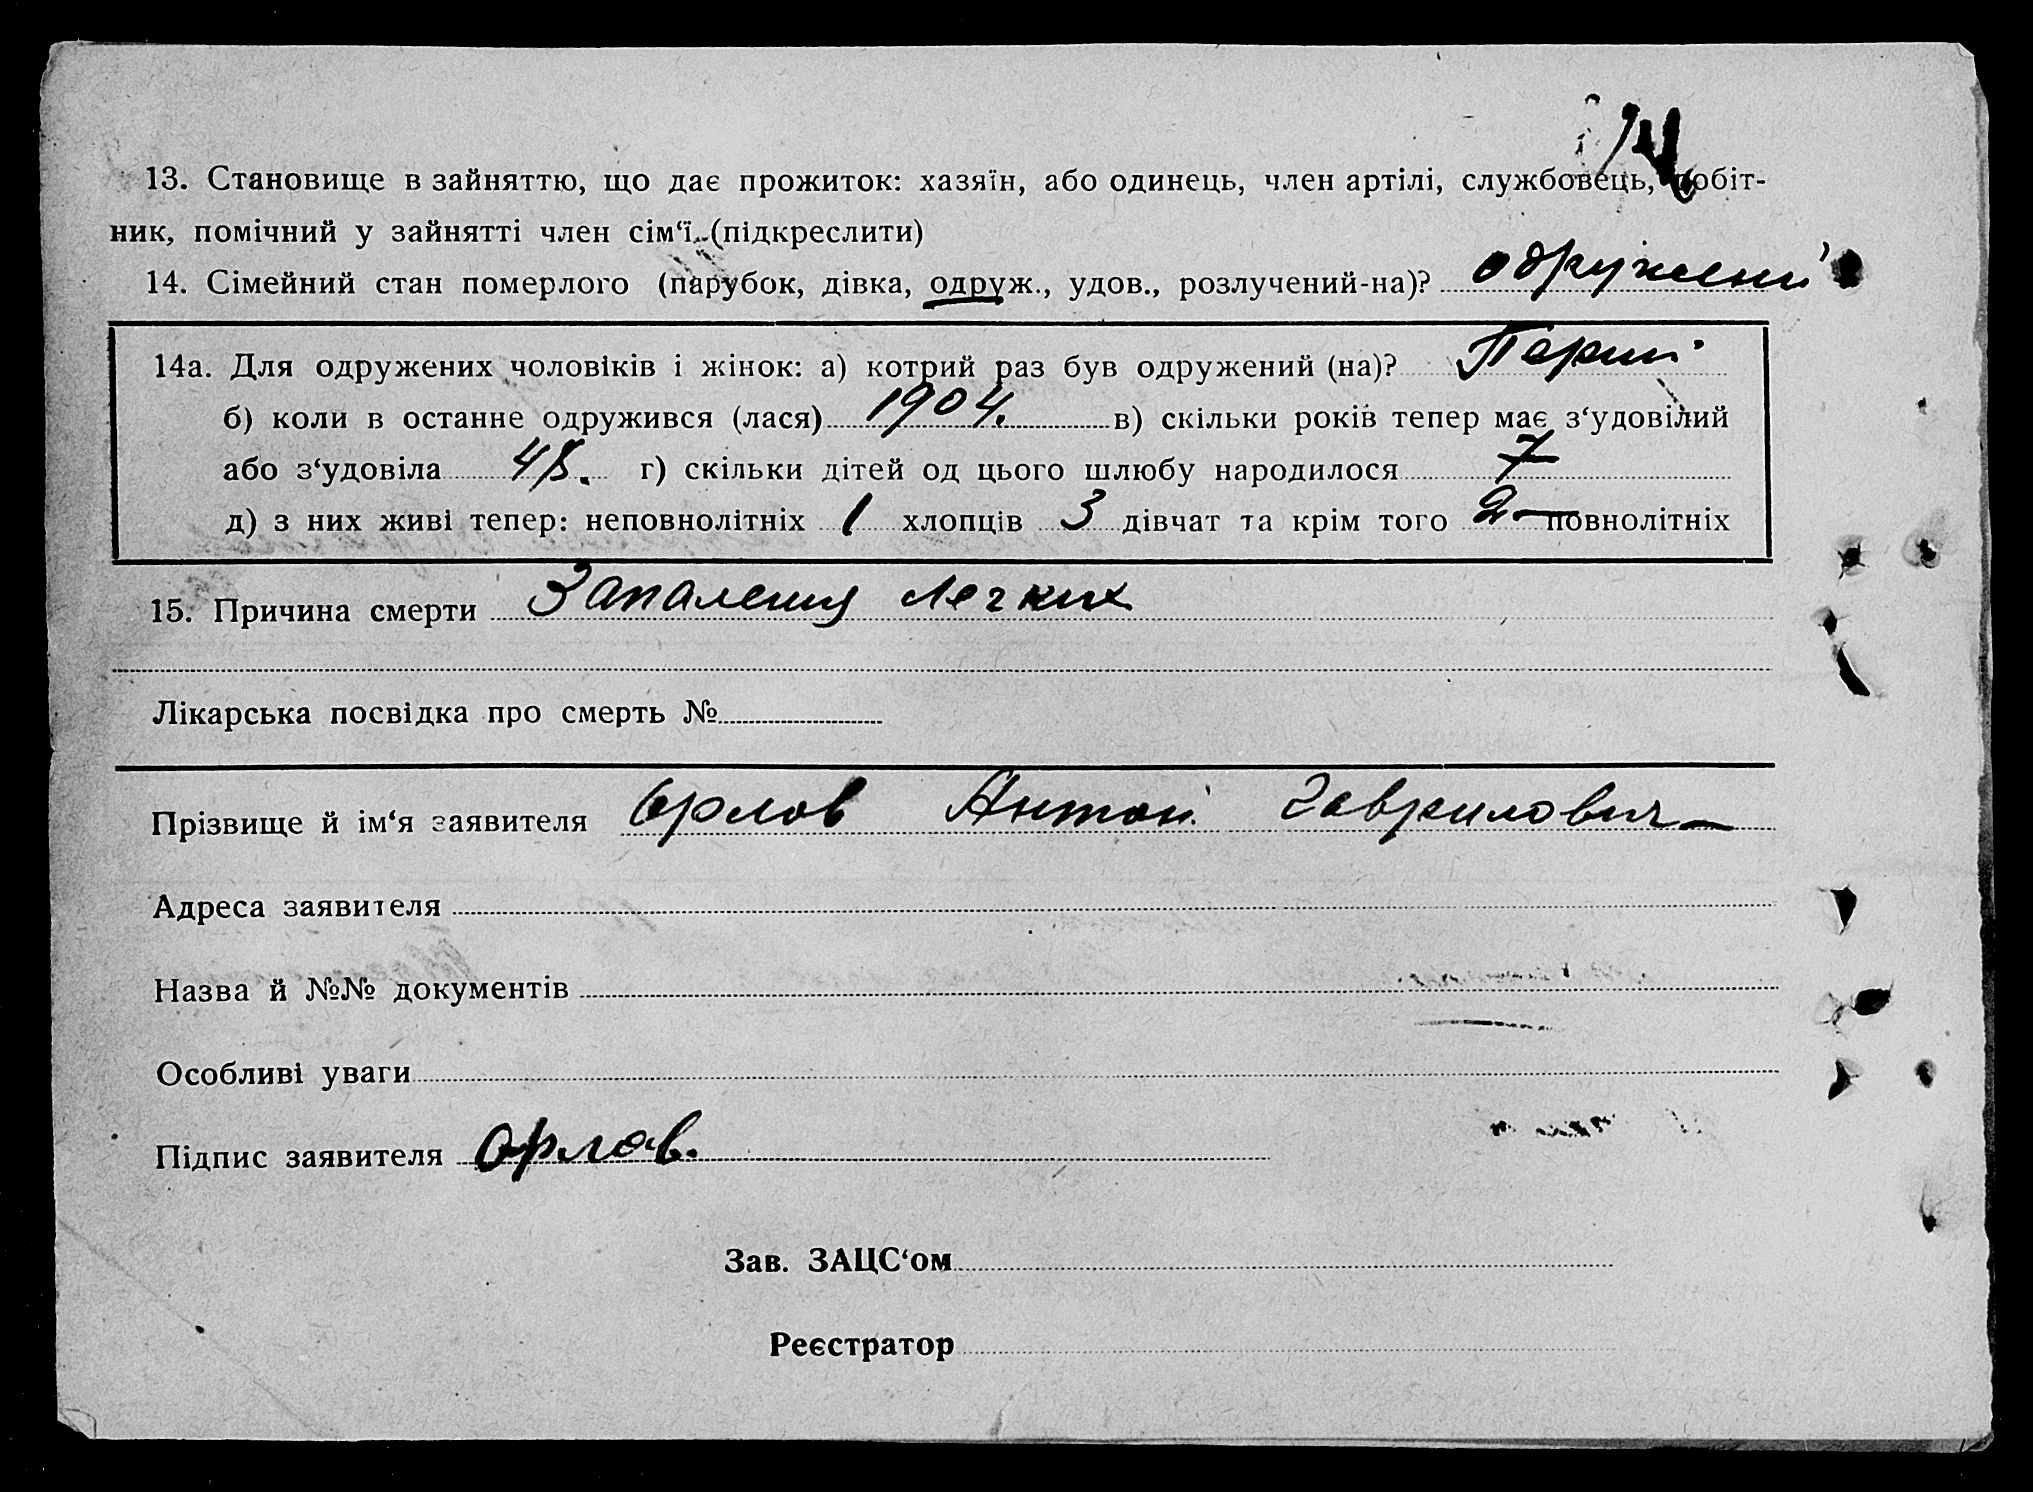 13. Становище в зайняттю, що дає прожиток: хазяїн, або одинець, член артілі, службовець, робіт-
ник, помічний у зайнятті член сім‘ї (підкреслити)
14. Сімейний стан померлого (парубок, дівка, одруж., удов., розлучений-на)? одружений
14а. Для одружених чоловіків і жінок: а) котрий раз був одружений (на)? Перший
б) коли в останне одружився (лася) 1904. в) скільки років тепер має з‘удовілий
або з‘удовіла 48. г) скільки дітей од цього шлюбу народилося 7
д) з них живі тепер: неповнолітніх 1 хлопців 3 дівчат та крім того 2 повнолітніх
15. Причина смерти Запалення Легких
Лікарська посвідка про смерть №
Прізвище й ім‘я заявителя Орлов Антон Гаврилович
Адреса заявителя
Назва й №№ документів
Особливі уваги
Підпис заявителя Орлов.
Зав. ЗАЦС‘ом
Реєстратор